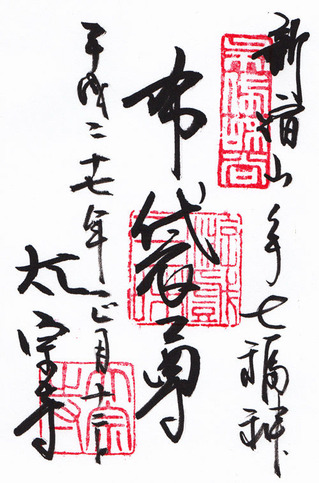 新宿山ノ手七福神
布袋尊
平成二十七年正月十二日
太宗寺